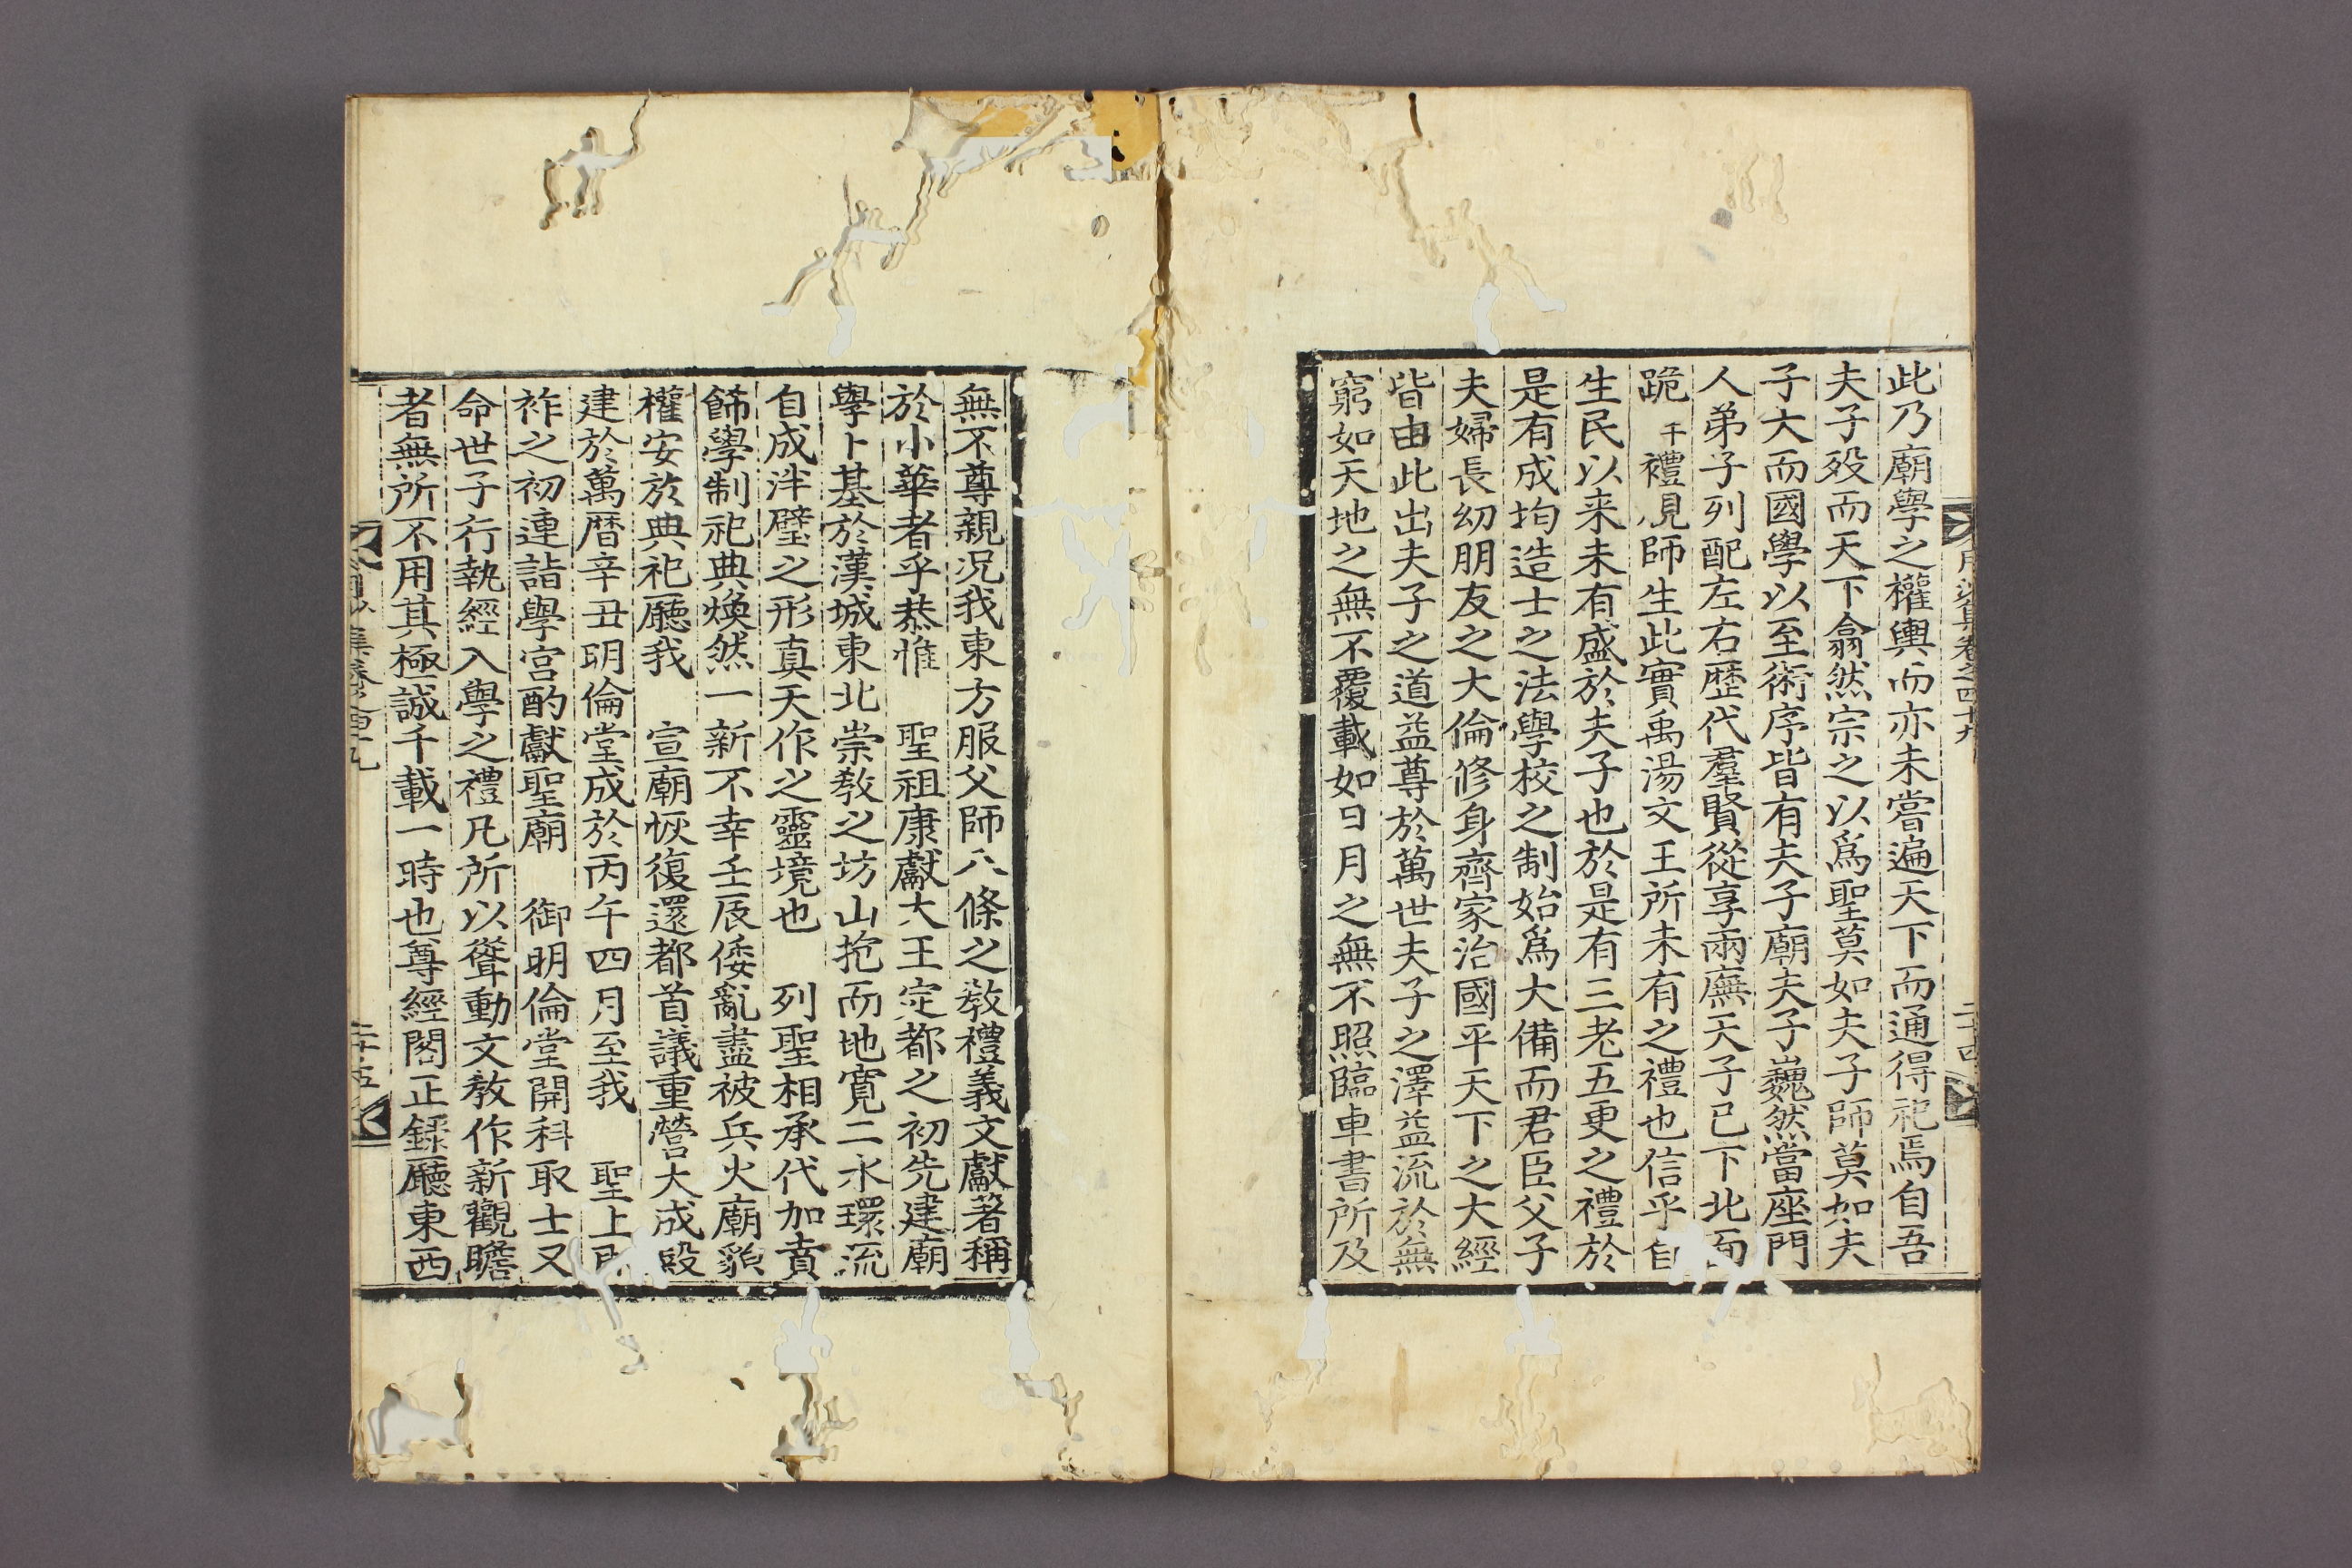 此乃廟學之權輿而亦未嘗遍天下而通得祀焉自吾
夫子歿而天下翕然宗之以爲聖莫如夫子師莫如夫
子大而國學以至術序皆有夫子廟夫子巍然當座門
人弟子列配左右歷代羣賢從享兩廡天子已下北面
跪 禮見師生此實禹湯文王所未有之禮也信乎自
生民以来未有盛於夫子也於是有三老五更之禮於
是有成均造士之法學校之制始爲大備而君臣父子
夫婦長幼朋友之大倫修身齊家治國平天下之大經
皆由此出夫子之道益尊於萬世夫子之澤益流於無
窮如天地之無不覆載如日月之無不照臨車書所及
無不尊親况我東方服父師八條之教禮義文獻著稱
於小華者乎恭惟 聖祖康獻大王定都之初先建廟
學卜基於漢城東北崇教之坊山抱而地寬二水環流
自成泮璧之形真天作之靈境也 列聖相承代加賁
餙學制祀典煥然一新不幸壬辰倭亂盡被兵火廟貌
權安於典祀廳我 宣廟恢復還都首議重營大成殿
建於萬曆辛丑明倫堂成於丙午四月至我 聖上
祚之初連詣學宮酌獻聖廟 御明倫堂開科取士又
命世子行執經入學之禮凡所以聳動文教作新觀瞻
者無所不用其極誠千載一時也尊經閣正錄廳東西
月沙集卷之四十九 二十四
月沙集卷之四十九 二十五